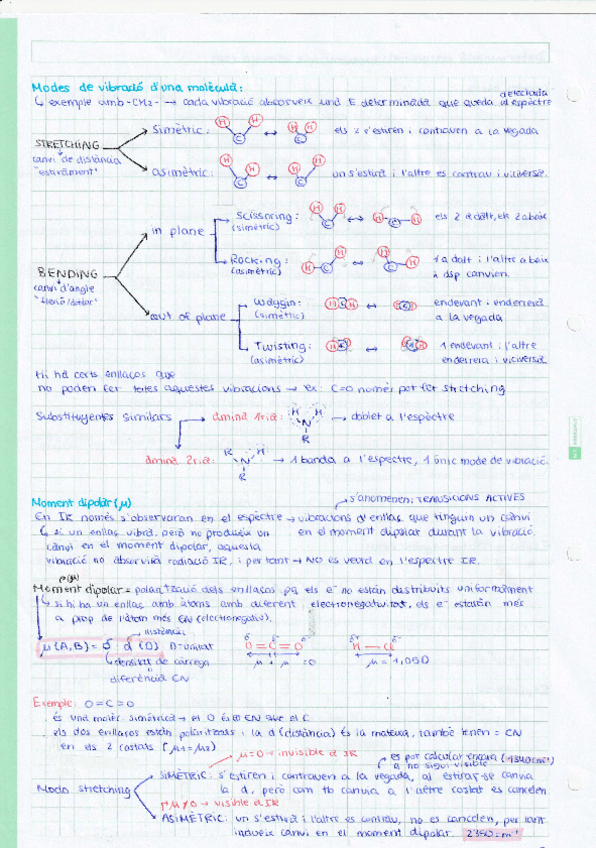 Modes de vibració d'una molècula:
↳ exemple amb -CH2- → cada vibració absorveix una E determinada que queda detectada al espectre
STRETCHING
canvi de distància
"estirament"
Simètric: H H C ↔ H H C els 2 s'estiren i contrauen a la vegada
asimètric: H H C ↔ H H C un s'estira i l'altre es contrau i viceversa.
BENDING
canvi d'angle
in plane
Scissoring: H H C ↔ H C H els 2 a dalt, els 2 a baix
(simètric)
Rocking: H C H ↔ H C H 1 a dalt i l'altre a baix
(asimètric) i dsp canvien.
out of plane
Wagging: H C H ↔ H C H endevant i enderrera
(simètric) a la vegada
Twisting: H C H ↔ H C H 1 endevant i l'altre
(asimètric) enderrera i viceversa
Hi ha certs enllaços que
no poden fer totes aquestes vibracions → ex: C=O només pot fer stretching
Substituyentes similars
amina 1ria: H H N R → doblet a l'espectre
amina 2ria: R H N R → 1 banda a l'espectre, 1 únic mode de vibració.
Moment dipolar (μ)
s'anomenen: TRANSICIONS ACTIVES
En IR només s'observaran en el espectre → vibracions d'enllaç que tinguin un canvi
en el moment dipolar durant la vibració.
↳ si un enllaç vibra, però no produeix un
canvi en el moment dipolar, aquesta
vibració no absorvirà radiació IR, i per tant → NO es veurà en l'espectre IR.
Moment dipolar = polarització dels enllaços pq els e- no están distribuits uniformement
↳ si hi ha un enllaç amb àtoms amb diferent electronegativitat, els e- estaràn més
a prop de l'àtom més EN (electronegatiu).
distància
μ(A,B) = δ d (D) D=unitat
densitat de càrrega
diferència EN
O=C=O
μ + μ = 0
H—Cl
μ = 1,05D
Exemple: O=C=O
. és una molèc simètrica → el O és + EN que el C
. els dos enllaços están polaritzats i la d (distància) és la mateixa, també tenen = EN
en els 2 costats (μ1=μ2)
Modo stretching
μ=0 → invisible a IR
es pot calcular encara
q no sigui visible
(1340cm-1)
SIMÈTRIC: s'estiren i contrauen a la vegada, al estirar-se canvia
la d, però com tb canvia a l'altre costat es cancelen
μ≠0 → visible a IR
ASIMÈTRIC: un s'estira i l'altre es contrau, no es cancelen, per tant
indueix canvi en el moment dipolar. 2350cm-1